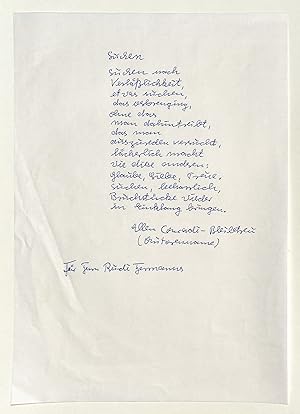 Suchen
Suchen nach
Verläßlichkeit,
etwas suchen,
das
ohne das
man dahintreibt,
das man
auszureden versucht,
lächerlich macht
wie diese anderen:
Glaube, Liebe, Treue.
Suchen, beharrlich,
Bruchstücke wieder
in Einklang bringen.
Ellen Conradi-Bleibtreu
(Autorenname)
Für Rudi Germanus